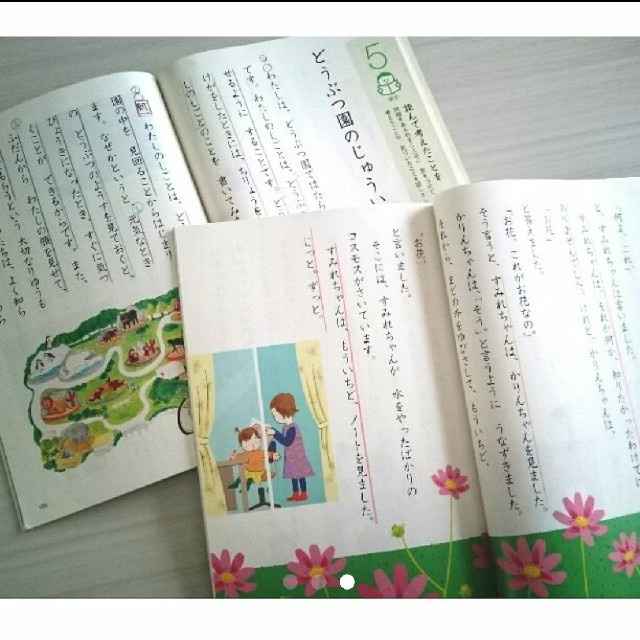 5
どうぶつ園のじゅうい
読んで考えたことを
わたしは、どうぶつ園ではたら
です。わたしのしごとは、どうぶ
せるように することです。ど
けがをしたときには、ちりょうを
しのしごとのことを 書いてみ
朝
わたしのしごとは、ど
園の中を 見回ることからはじまり
ます。なぜかというと、元気なとき
の どうぶつのようすを見ておくと、
びょうきになったとき、すぐに気づ
くことが できるからです。また、
ふだんから わたしの顔を見せて、
もらうという 大切なりゆうも
「何よ、これ。」
「お花。」
と答えました。
「お花。これがお花なの。」
そう言うと、すみれちゃんは、かりんちゃんを見ました。
かりんちゃんは、「そう。」と言うように うなずきました。
「お花。」
と言いました。
そこには、すみれちゃんが 水をやったばかりの
コスモスがさいています。
すみれちゃんは、もういちど、ノートを見ました。
じっと、ずっと。